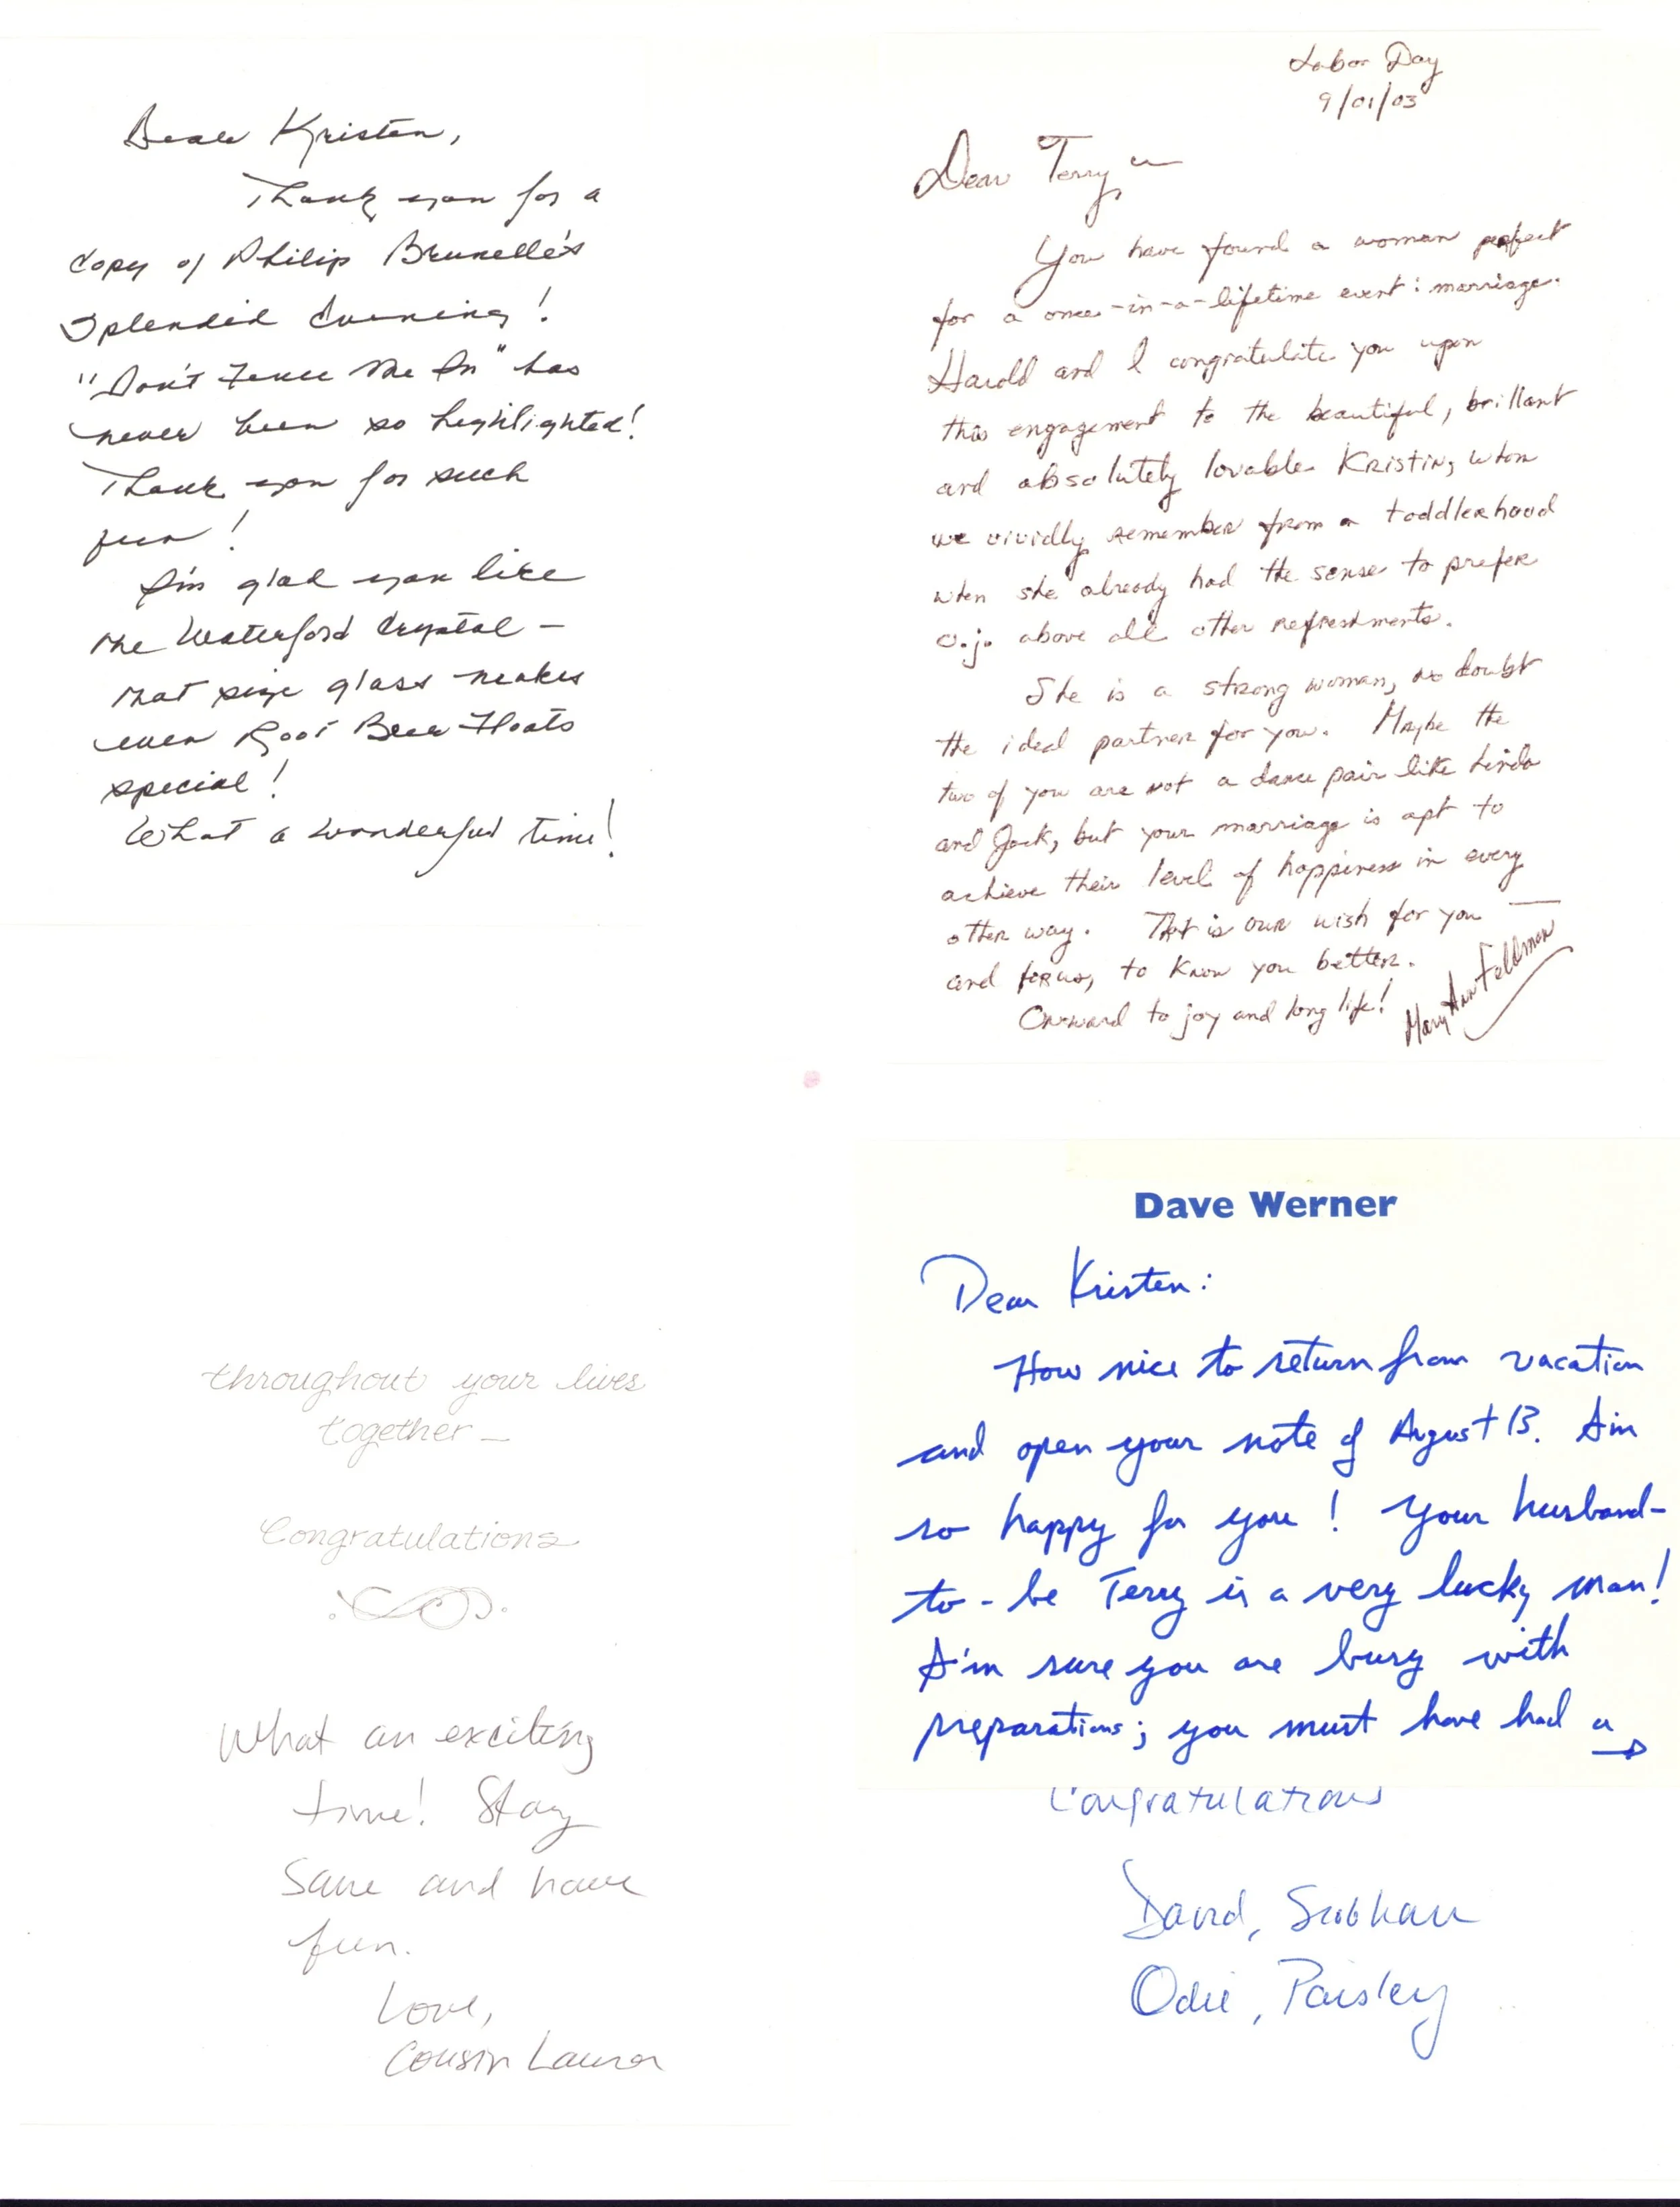 Dear Kristen,
Thank you for a
Copy of Philip Brunelle's
Splendid Evening!
"Don't Fence Me In" has
never been so highlighted!
Thank you for such
fun!
I'm glad you like
the Waterford Crystal –
that size glass makes
even Root Beer Floats
special!
What a wonderful time!
Labor Day
9/01/03
Dear Terry,
You have found a woman perfect
for a once-in-a-lifetime event: marriage.
Harold and I congratulate you upon
this engagement to the beautiful, brillant
and absolutely lovable Kristin, whom
we vividly remember from a toddlerhood
when she already had the sense to prefer
o.j. above all other refreshments.
She is a strong woman, no doubt
the ideal partner for you. Maybe the
two of you are not a dance pair like Linda
and Jack, but your marriage is apt to
achieve their level of happiness in every
other way. That is our wish for you —
and for us, to know you better.
Onward to joy and long life!
Mary Ann Feldman
throughout your lives
together –
Congratulations
What an exciting
time! Stay
Sane and have
fun.
Love,
Cousin Laura
Dave Werner
Dear Kristen:
How nice to return from vacation
and open your note of August 13. I'm
so happy for you! Your husband-
to-be Terry is a very lucky man!
I'm sure you are busy with
preparations; you must have had a →
Congratulations
David, Siobhan
Odie, Paisley